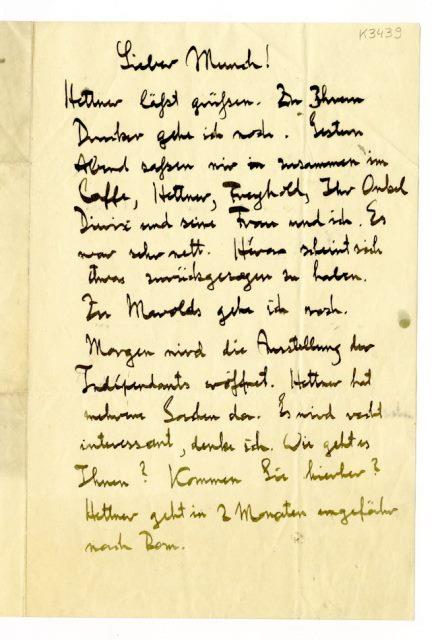 K3439
Lieber Munch!
Hettner läßt grüßen. Zu Ihrem
Drucker gehe ich noch. Gestern
Abend saßen wir zusammen im
Caffe, Hettner, Freyhold, Ihr Onkel
Diriks und seine Frau und ich. Es
war sehr nett. scheint sich
etwas zurückgezogen zu haben.
Zu Marolds gehe ich noch.
Morgen wird die Ausstellung der
Indépendants eröffnet. Hettner hat
mehrere Sachen da. Es wird recht
interessant, denke ich. Wie geht es
Ihnen? Kommen Sie hierher?
Hettner geht in 2 Monaten ungefähr
nach Rom.